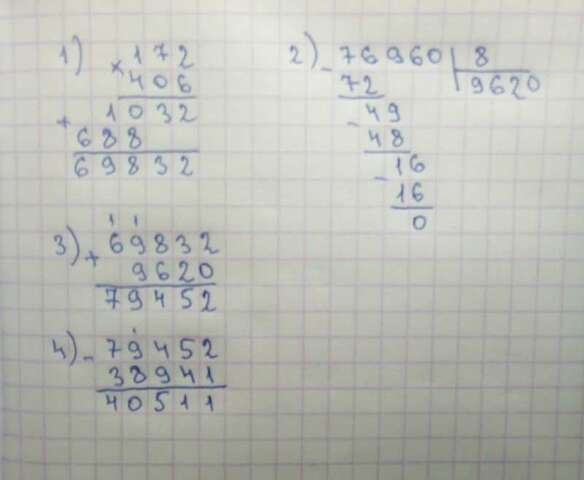 1) × 172
406
+ 1032
688
69832
2) - 76960 | 8
72 | 9620
- 49
48
- 16
16
0
1 1
3) + 69832
9620
79452
4) - 79452
38941
40511